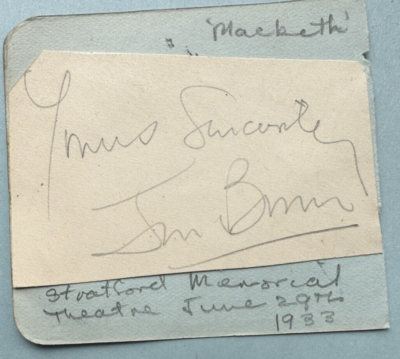 'Macbeth'
Yours Sincerely
Stratford Memorial
Theatre June 29th
1933